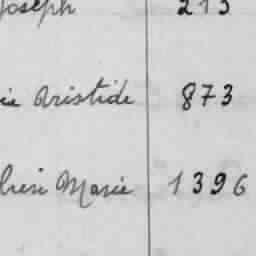 Joseph 213
ie Aristide 873
Marie 1396